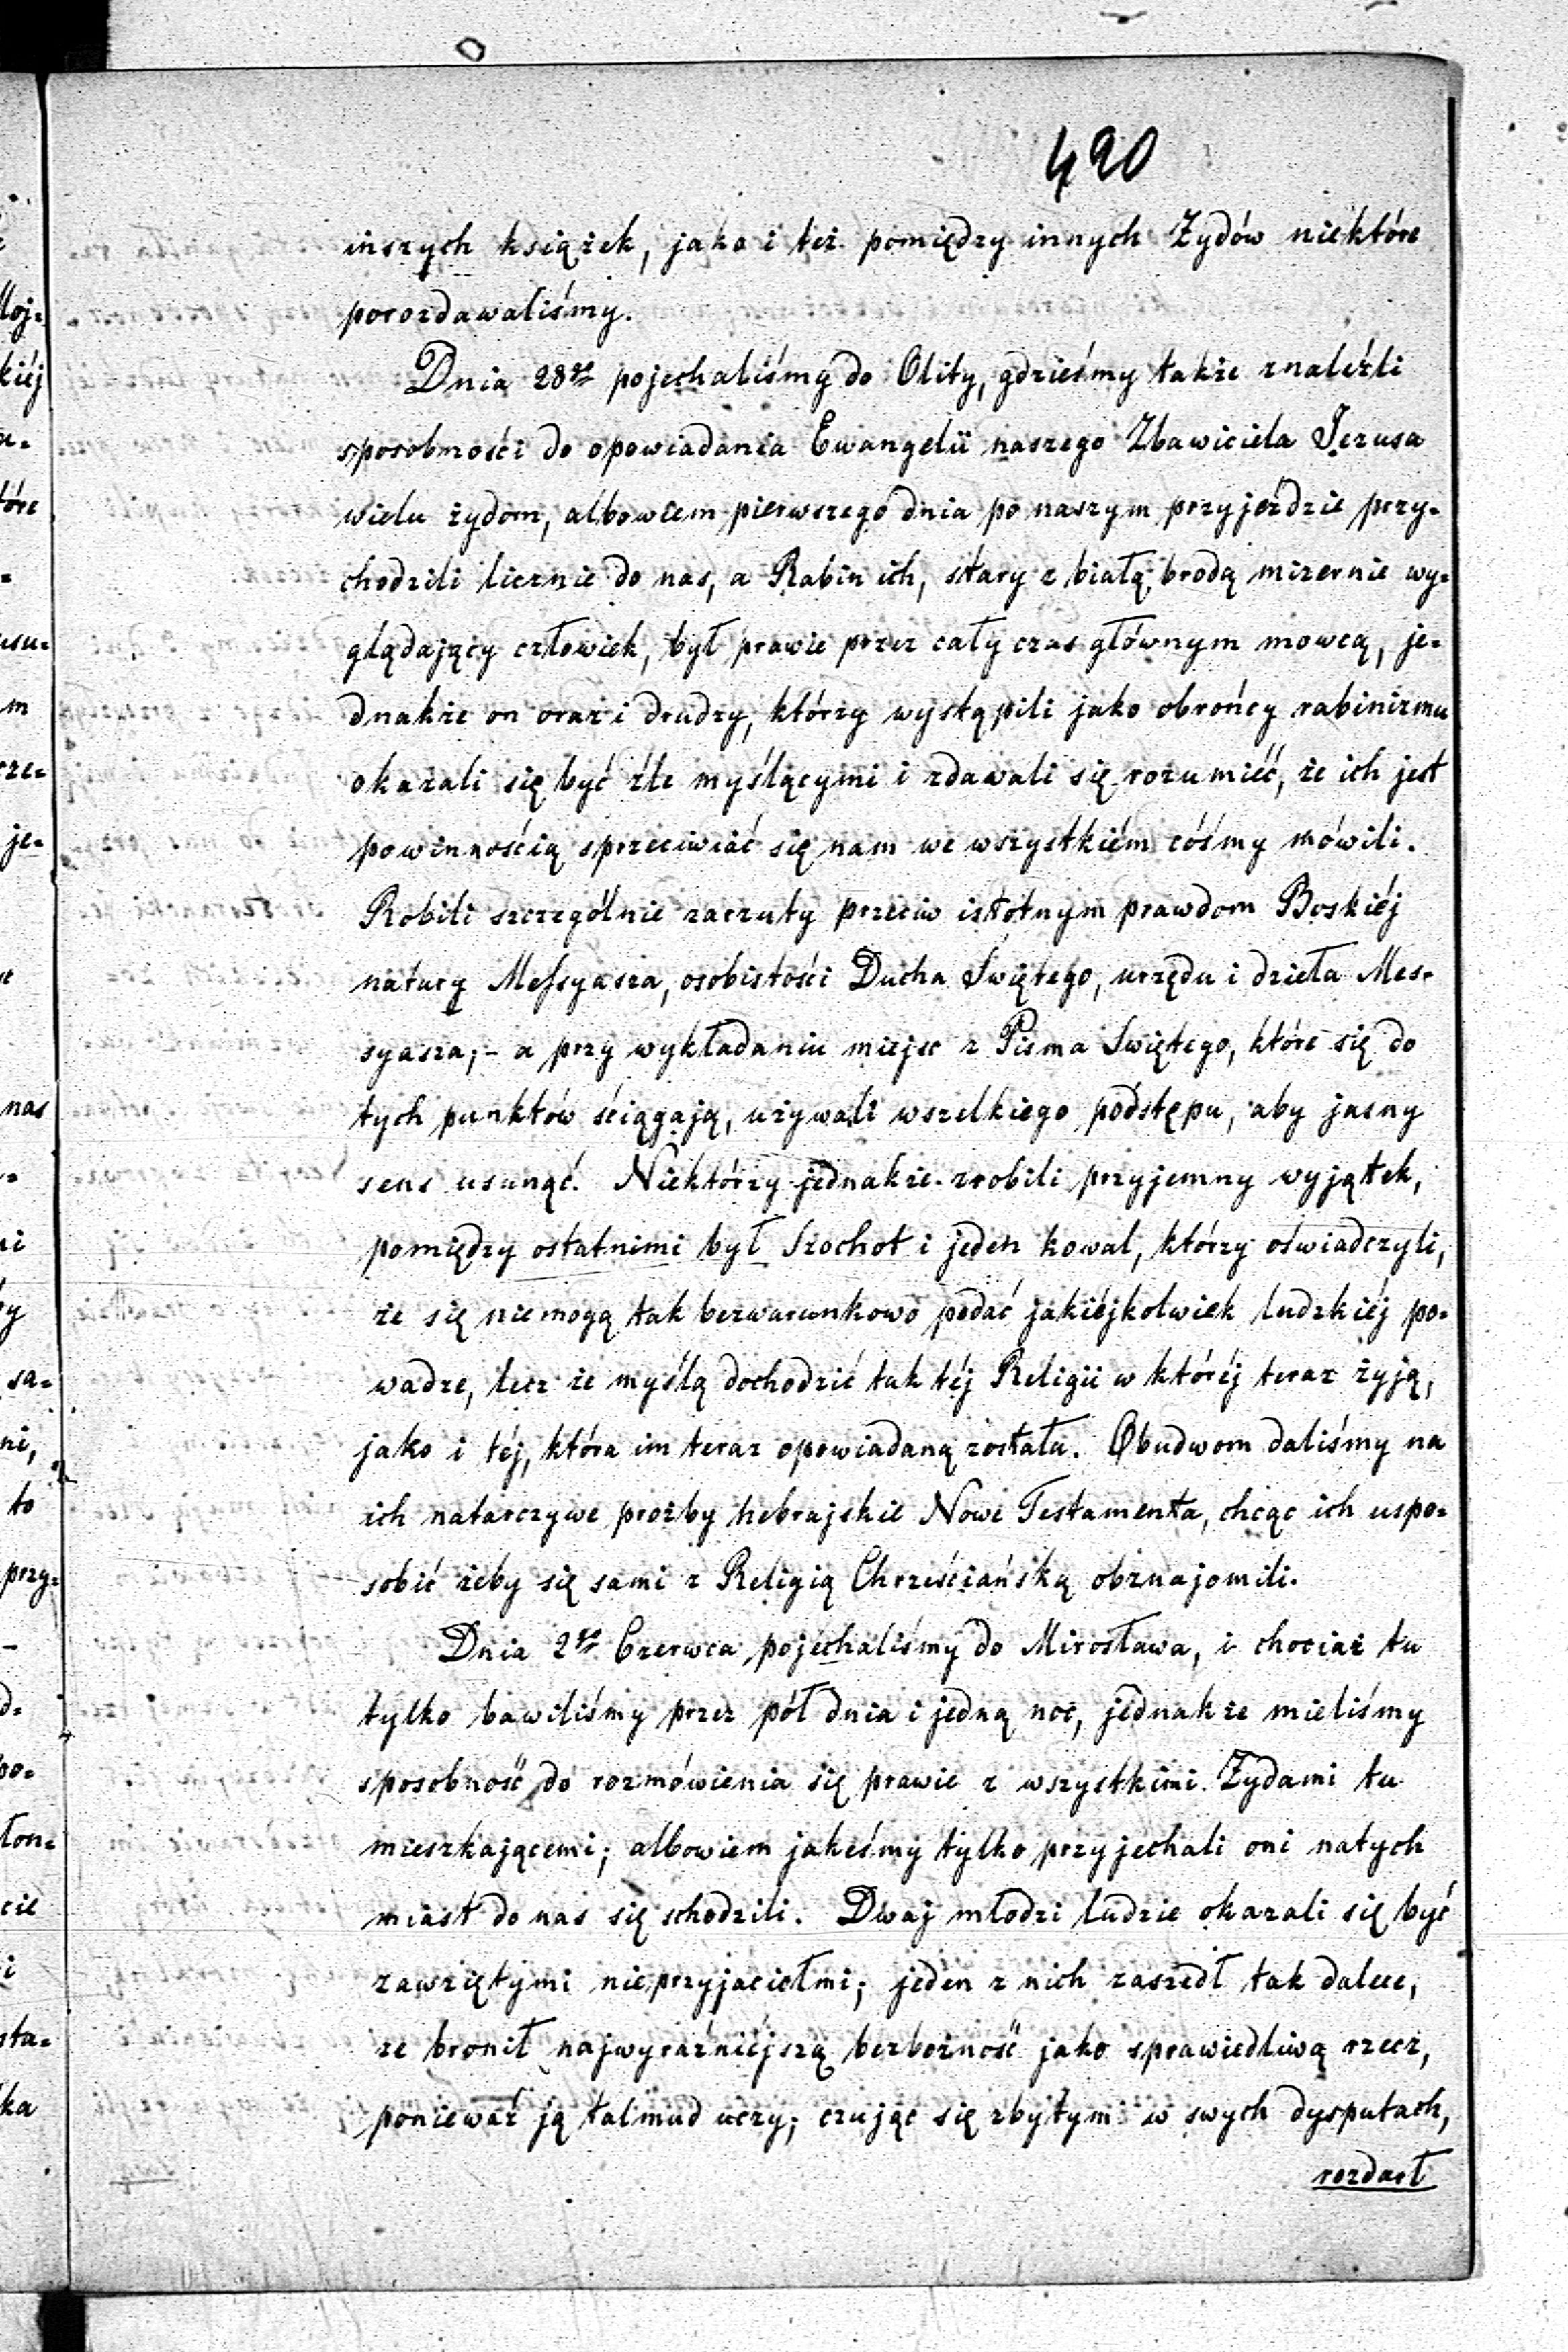 490
inszych książek, jako i też pomiędzy innych Żydów niektóre
porozdawaliśmy.
Dnia 28go pojechaliśmy do Olity, gdzieśmy także znaleźli
sposobności do opowiadania Ewangelii naszego Zbawiciela Jezusa
wielu żydom, albowiem pierwszego dnia po naszym przyjeździe przy-
chodzili licznie do nas, a Rabin ich, stary z białą brodą mizernie wy-
glądający człowiek, był prawie przez cały czas głównym mowcą, je-
dnakże on oraz i drudzy, którzy wystąpili jako obrońcy rabinizmu
okazali się być źle myślącymi i zdawali się rozumieć, że ich jest
powinnością sprzeciwiać się nam we wszystkiém cóśmy mówili.
Robili szczególnie zarzuty przeciw istotnym prawdom Boskiéj
natury Messyasza, osobistości Ducha Świętego, urzędu i dzieła Mes-
syasza, – a przy wykładaniu miejsc z Pisma Świętego, które się do
tych punktów ściągają, używali wszelkiego podstępu, aby jasny
sens usunąć. Niektórzy jednakże zrobili przyjemny wyjątek,
pomiędzy ostatnimi był Szochot i jeden kowal, którzy oświadczyli,
że się niemogą tak bezwarunkowo podać jakiéjkolwiek ludzkiéj po-
wadze, lecz że myślą dochodzić tak téj Religii w któréj teraz żyją,
jako i téj, która im teraz opowiadaną została. Obudwom daliśmy na
ich natarczywe proźby hebrajskie Nowe Testamenta, chcąc ich uspo-
sobić żeby się sami z Religią Chrześciańską obznajomili.
Dnia 2go Czerwca pojechaliśmy do Mirosława, i chociaż tu
tylko bawiliśmy przez pół dnia i jedną noc, jednakże mieliśmy
sposobność do rozmówienia się prawie z wszystkimi Żydami tu
mieszkającemi; albowiem jakeśmy tylko przyjechali oni natych
miast do nas się schodzili. Dwaj młodzi ludzie okazali się być
zawziętymi nieprzyjaciołmi; jeden z nich zaszedł tak dalece,
że bronił najwyraźniéjszą bezbożność jako sprawiedliwą rzecz,
ponieważ ją talmud uczy; czując się zbytym w swych dysputach,
rozdarł